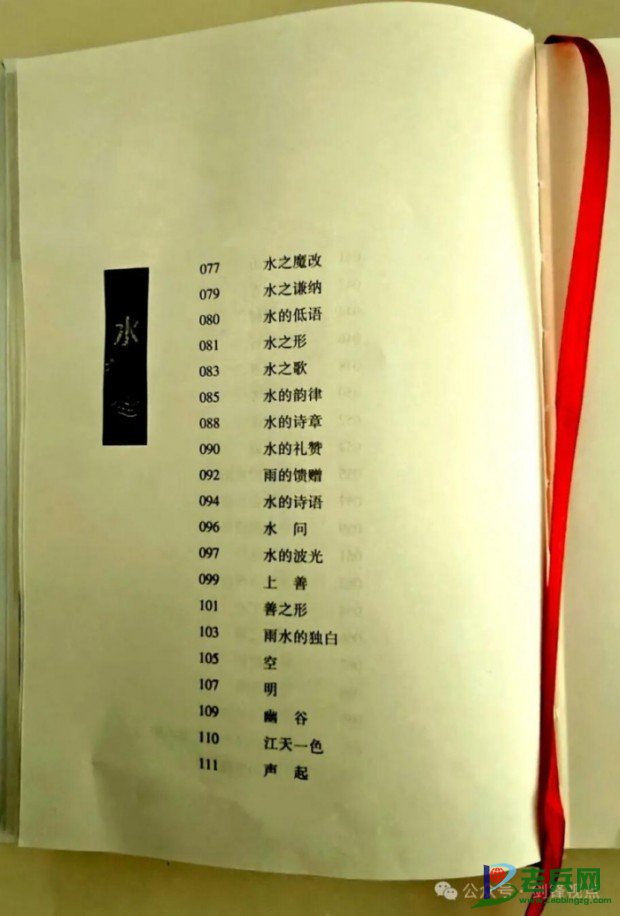 水
077 水之魔改
079 水之谦纳
080 水的低语
081 水之形
083 水之歌
085 水的韵律
088 水的诗章
090 水的礼赞
092 雨的馈赠
094 水的诗语
096 水 问
097 水的波光
099 上 善
101 善之形
103 雨水的独白
105 空
107 明
109 幽 谷
110 江天一色
111 声 起
公众号·剑锋视点
老兵网